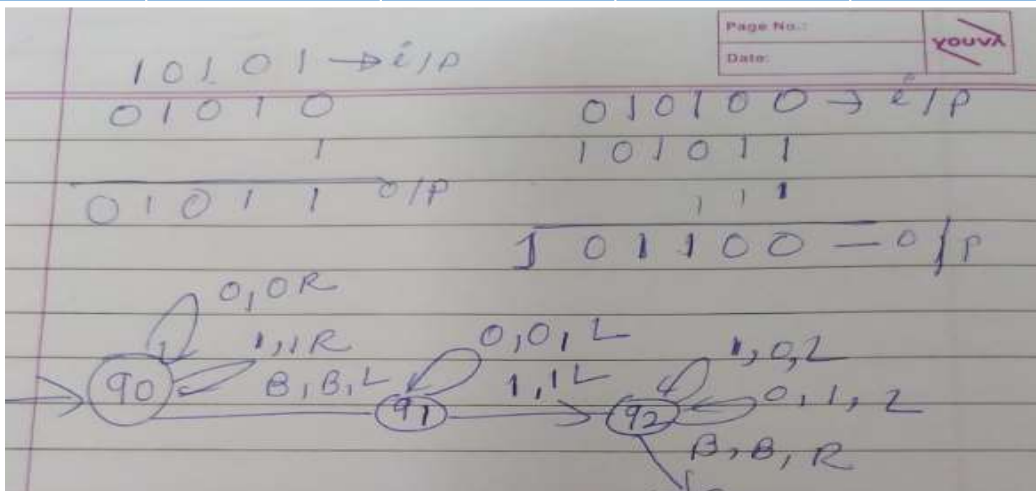 Page No.:
Date:
YOUVA
10101 → i/p
01010
1
01011 o/p
010100 → i/p
101011
111
101100 — o/p
0,0R
1,1R
B,B,L
0,0,L
1,1L
1,0,L
0,1,L
B,B,R
q0
q1
q2